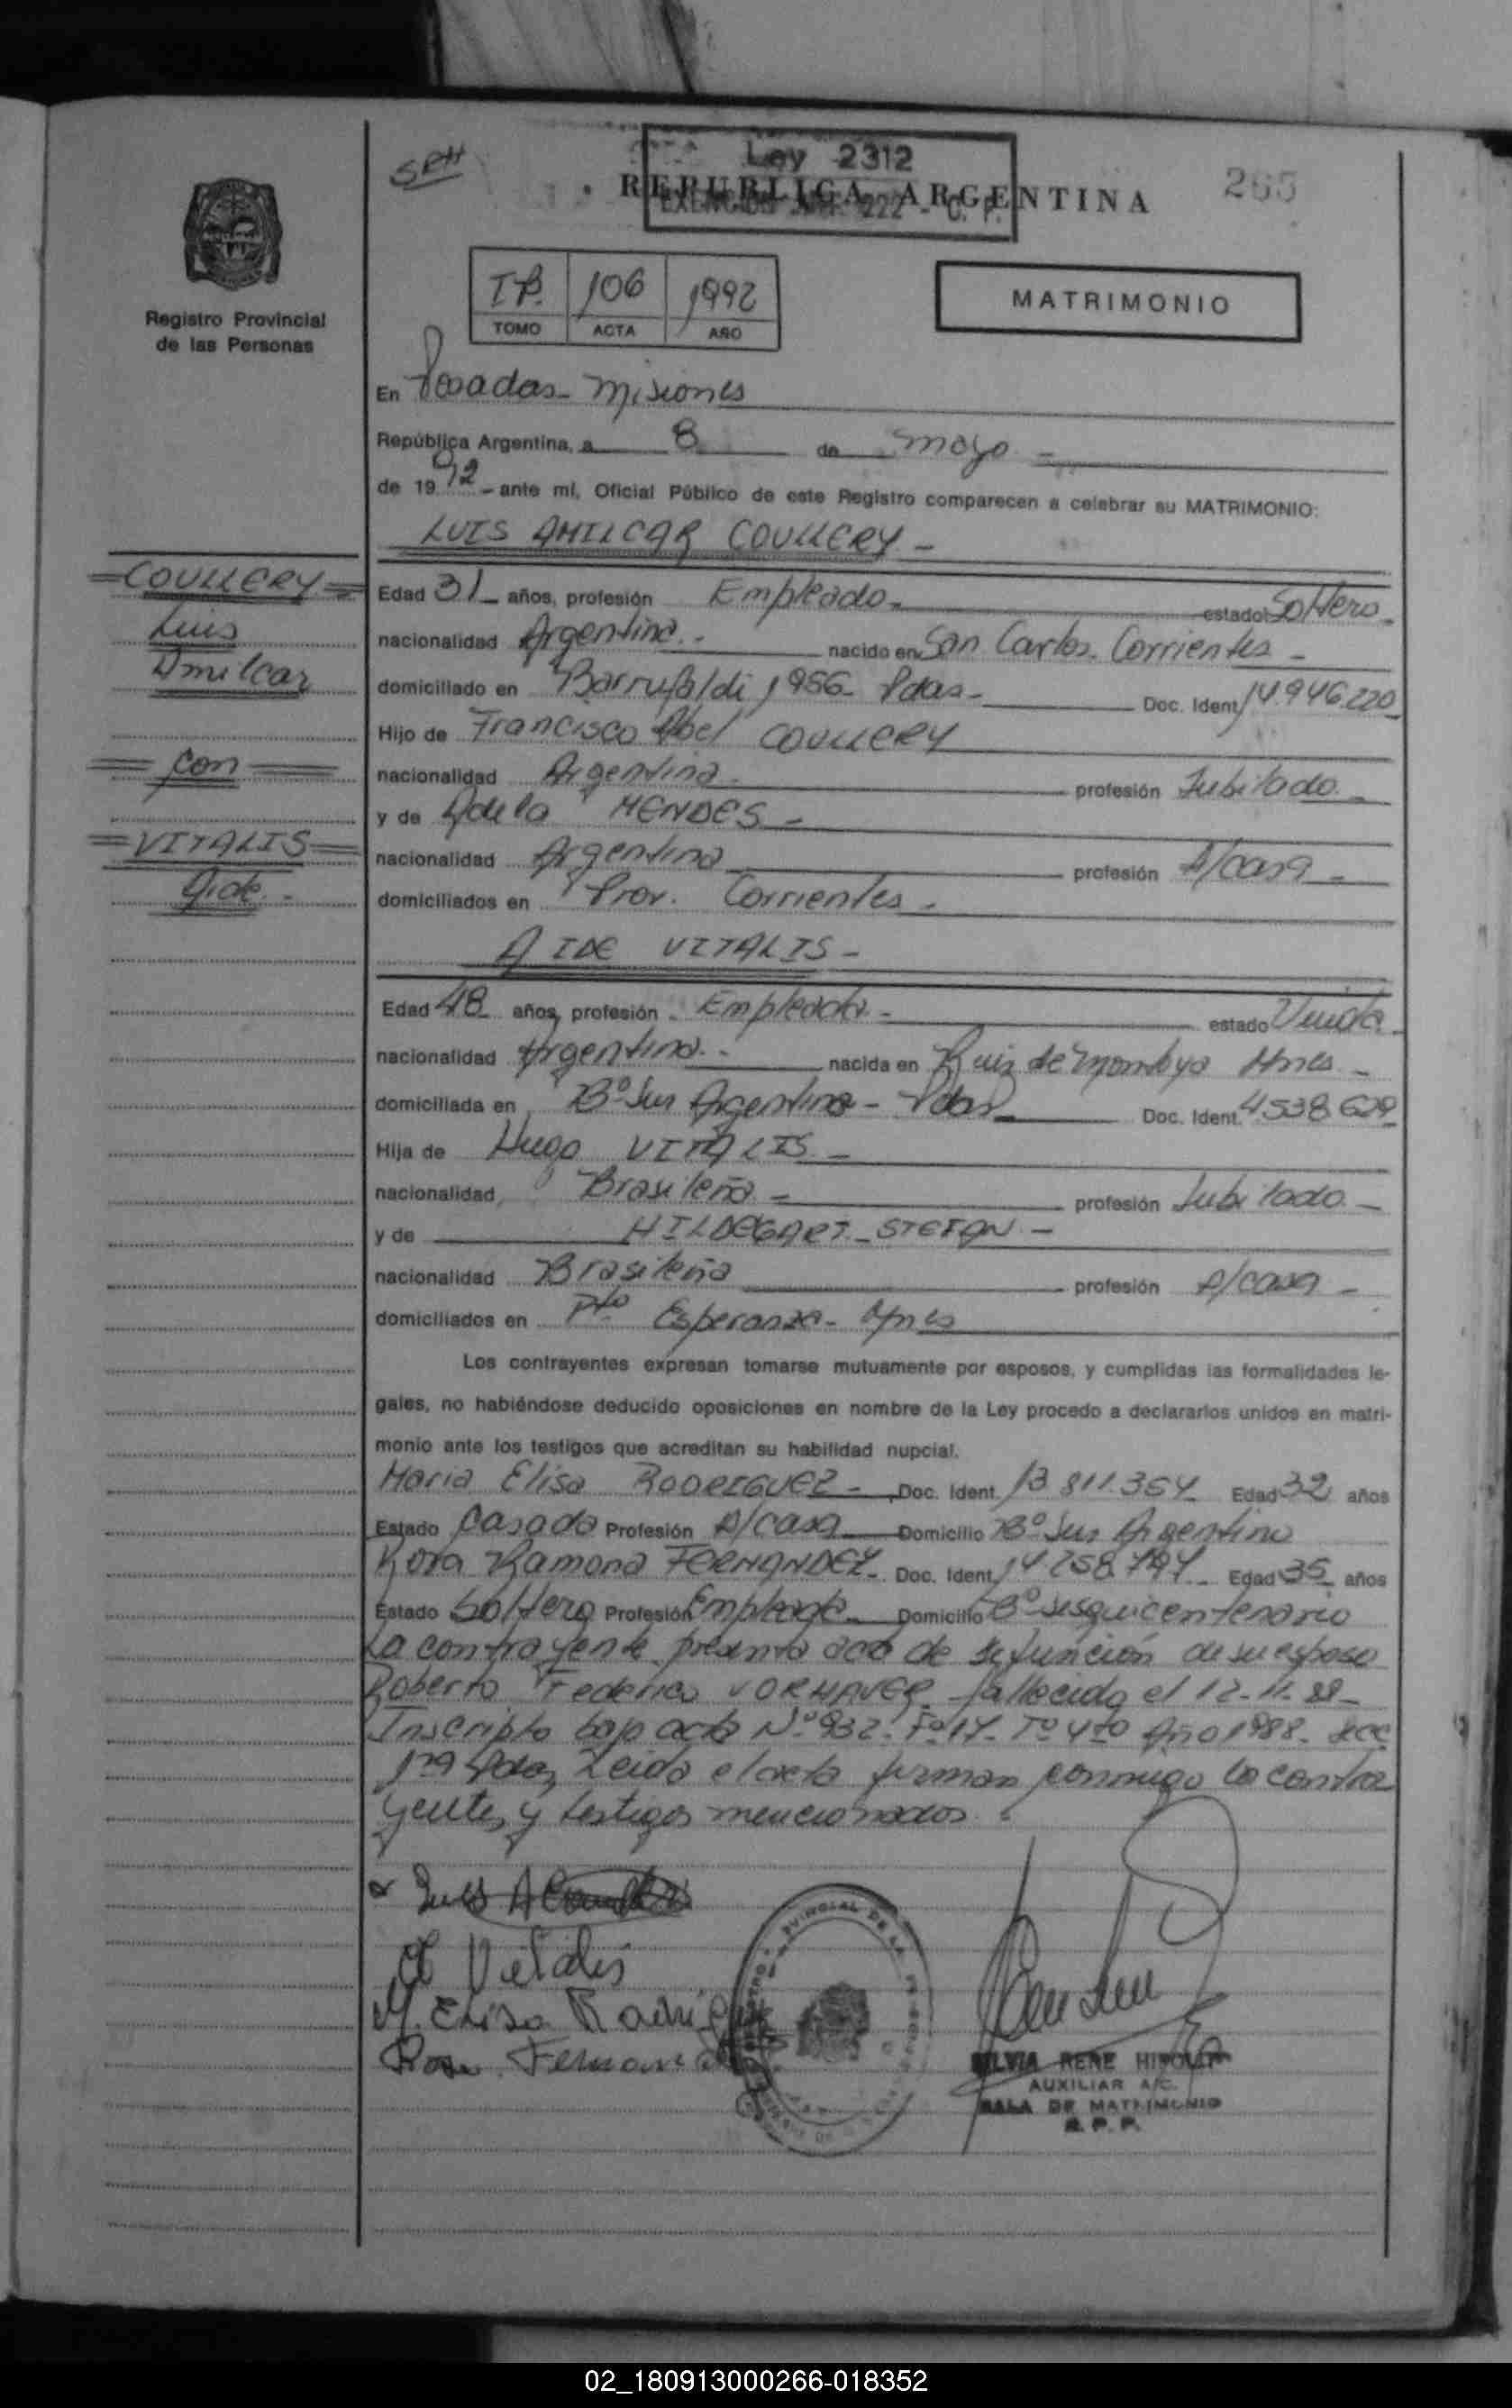 SRH
Ley 2312
REPUBLICA ARGENTINA
EXENCION ART. 222 - C. P.
265
Registro Provincial
de las Personas
Iº 106 1992
TOMO ACTA AÑO
MATRIMONIO
En Posadas - Misiones
República Argentina, a 8 de mayo -
de 1992 - ante mí, Oficial Público de este Registro comparecen a celebrar su MATRIMONIO:
LUIS AMILCAR COULLERY -
=COULLERY=
Luis
Amilcar
= con =
=VITALIS=
Aide -
Edad 31 años, profesión Empleado - estado Soltero -
nacionalidad Argentina - nacido en San Carlos - Corrientes -
domiciliado en Barrufaldi 1956 - Pdas - Doc. Ident. 14.946.220
Hijo de Francisco Abel COULLERY
nacionalidad Argentina - profesión Jubilado -
y de Adela MENDES -
nacionalidad Argentina profesión A/casa -
domiciliados en Prov. Corrientes -
AIDE VITALIS -
Edad 48 años, profesión Empleada - estado Viuda -
nacionalidad Argentina - nacida en Ruiz de Montoya Mnes -
domiciliada en Bº Sur Argentino - Pdas Doc. Ident. 4.538.629
Hija de Hugo VITALIS -
nacionalidad Brasileña - profesión Jubilado -
y de HILDEGART STEFAN -
nacionalidad Brasileña profesión A/casa -
domiciliados en Pto Esperanza - Mnes
Los contrayentes expresan tomarse mutuamente por esposos, y cumplidas las formalidades le-
gales, no habiéndose deducido oposiciones en nombre de la Ley procedo a declararlos unidos en matri-
monio ante los testigos que acreditan su habilidad nupcial.
Maria Elisa RODRIGUEZ - Doc. Ident. 13 811.354 Edad 32 años
Estado Casada Profesión A/casa Domicilio Bº Sur Argentino
Rosa Ramona FERNANDEZ - Doc. Ident. 14 258 797 - Edad 35 años
Estado Soltera Profesión Empleada - Domicilio Bº Sesquicentenario
La contrayente presenta acta de defunción de su esposo
Roberto Federico VORHAUER - fallecido el 12-11-88 -
Inscripto bajo acta Nº 932 - Fº 17 - Tº 4to Año 1988 - Secc
1ra Pdas, Leida el acta firman conmigo lo contra
yentes y testigos mencionados -
Luis A Coullery
A Vitalis
M. Elisa Rodriguez
Rosa Fernandez
SILVIA RENE HIPOLITO
AUXILIAR A/C.
SALA DE MATRIMONIO
R. P. P.
02_180913000266-018352